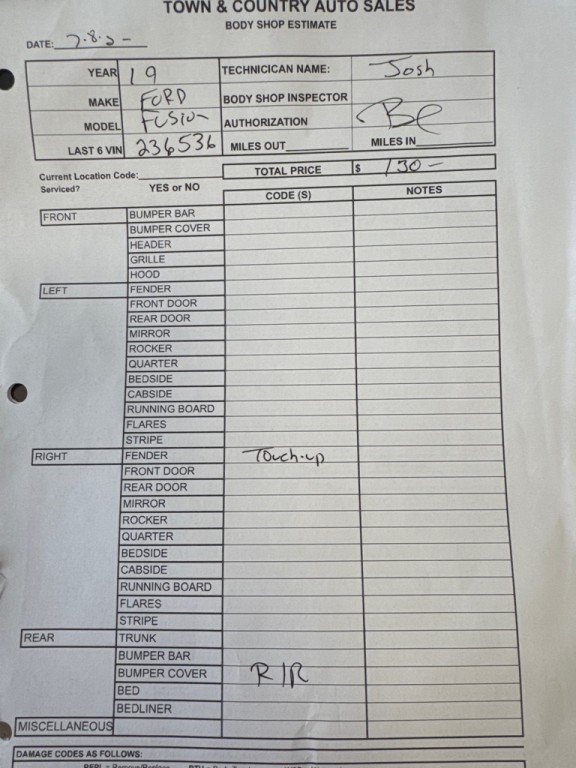 TOWN & COUNTRY AUTO SALES
BODY SHOP ESTIMATE
DATE:
YEAR 19 TECHNICICAN NAME: Josh
MAKE FORD BODY SHOP INSPECTOR
MODEL FUSION AUTHORIZATION
LAST 6 VIN 236536 MILES OUT MILES IN
Current Location Code: TOTAL PRICE $ 130-
Serviced? YES or NO CODE (S) NOTES
FRONT BUMPER BAR
BUMPER COVER
HEADER
GRILLE
HOOD
LEFT FENDER
FRONT DOOR
REAR DOOR
MIRROR
ROCKER
QUARTER
BEDSIDE
CABSIDE
RUNNING BOARD
FLARES
STRIPE
RIGHT FENDER Touch-up
FRONT DOOR
REAR DOOR
MIRROR
ROCKER
QUARTER
BEDSIDE
CABSIDE
RUNNING BOARD
FLARES
STRIPE
REAR TRUNK
BUMPER BAR
BUMPER COVER R/R
BED
BEDLINER
MISCELLANEOUS
DAMAGE CODES AS FOLLOWS: